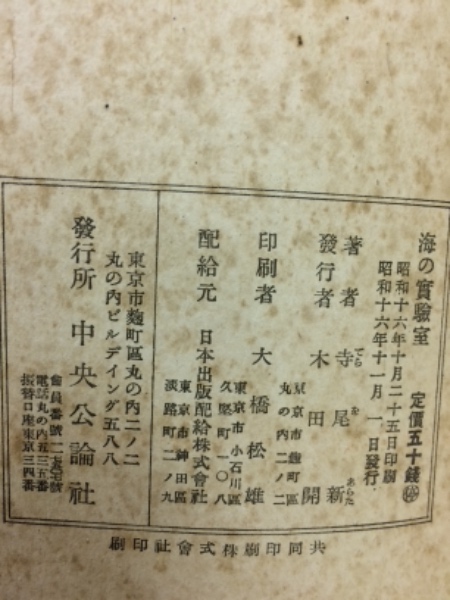 海の實驗室
定價五十錢
昭和十六年十月二十五日印刷
昭和十六年十一月一日發行
著者 寺尾新
てら を あらた
發行者 木田開
東京市麴町區
丸の內二ノ二
印刷者 大橋松雄
東京市小石川區
久堅町一〇八
配給元 日本出版配給株式會社
東京市神田區
淡路町二ノ九
東京市麴町區丸の內二ノ二
丸の內ビルデイング五八八
發行所 中央公論社
電話丸の內五三五番
振替口座東京三四番
共同印刷株式會社印刷